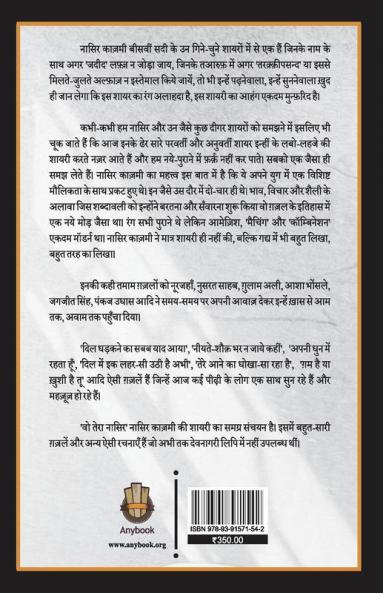 नासिर काज़मी बीसवीं सदी के उन गिने-चुने शायरों में से एक हैं जिनके नाम के
साथ अगर 'जदीद' लफ़्ज़ न जोड़ा जाय, जिनके तआरुफ़ में अगर 'तरक़्क़ीपसन्द' या इससे
मिलते-जुलते अल्फ़ाज़ न इस्तेमाल किये जायें, तो भी इन्हें पढ़नेवाला, इन्हें सुननेवाला ख़ुद
ही जान लेगा कि इस शायर का रंग अलाहदा है, इस शायरी का आहंग एकदम मुन्फ़रिद है।
कभी-कभी हम नासिर और उन जैसे कुछ दीगर शायरों को समझने में इसलिए भी
चूक जाते हैं कि आज इनके ढेर सारे परवर्ती और अनुवर्ती शायर इन्हीं के लबो-लहजे की
शायरी करते नज़र आते हैं और हम नये-पुराने में फ़र्क़ नहीं कर पाते। सबको एक जैसा ही
समझ लेते हैं। नासिर काज़मी का महत्त्व इस बात में है कि ये अपने युग में एक विशिष्ट
मौलिकता के साथ प्रकट हुए थे। इन जैसे उस दौर में दो-चार ही थे। भाव, विचार और शैली के
अलावा जिस शब्दावली को इन्होंने बरतना और सँवारना शुरू किया वो ग़ज़ल के इतिहास में
एक नये मोड़ जैसा था। रंग सभी पुराने थे लेकिन आमेज़िश, 'मैचिंग' और 'कॉम्बिनेशन'
एकदम मॉडर्न था। नासिर काज़मी ने मात्र शायरी ही नहीं की, बल्कि गद्य में भी बहुत लिखा,
बहुत तरह का लिखा।
इनकी कही तमाम ग़ज़लों को नूरजहाँ, नुसरत साहब, ग़ुलाम अली, आशा भोंसले,
जगजीत सिंह, पंकज उधास आदि ने समय-समय पर अपनी आवाज़ देकर इन्हें ख़ास से आम
तक, अवाम तक पहुँचा दिया।
'दिल धड़कने का सबब याद आया', 'नीयते-शौक़ भर न जाये कहीं', 'अपनी धुन में
रहता हूँ', 'दिल में इक लहर-सी उठी है अभी', 'तेरे आने का धोखा-सा रहा है', 'ग़म है या
ख़ुशी है तू' आदि ऐसी ग़ज़लें हैं जिन्हें आज कई पीढ़ी के लोग एक साथ सुन रहे हैं और
महज़ूज़ हो रहे हैं।
'वो तेरा नासिर' नासिर काज़मी की शायरी का समग्र संचयन है। इसमें बहुत-सारी
ग़ज़लें और अन्य ऐसी रचनाएँ हैं जो अभी तक देवनागरी लिपि में नहीं उपलब्ध थीं।
Anybook
www.anybook.org
ISBN 978-93-91571-54-2
₹350.00